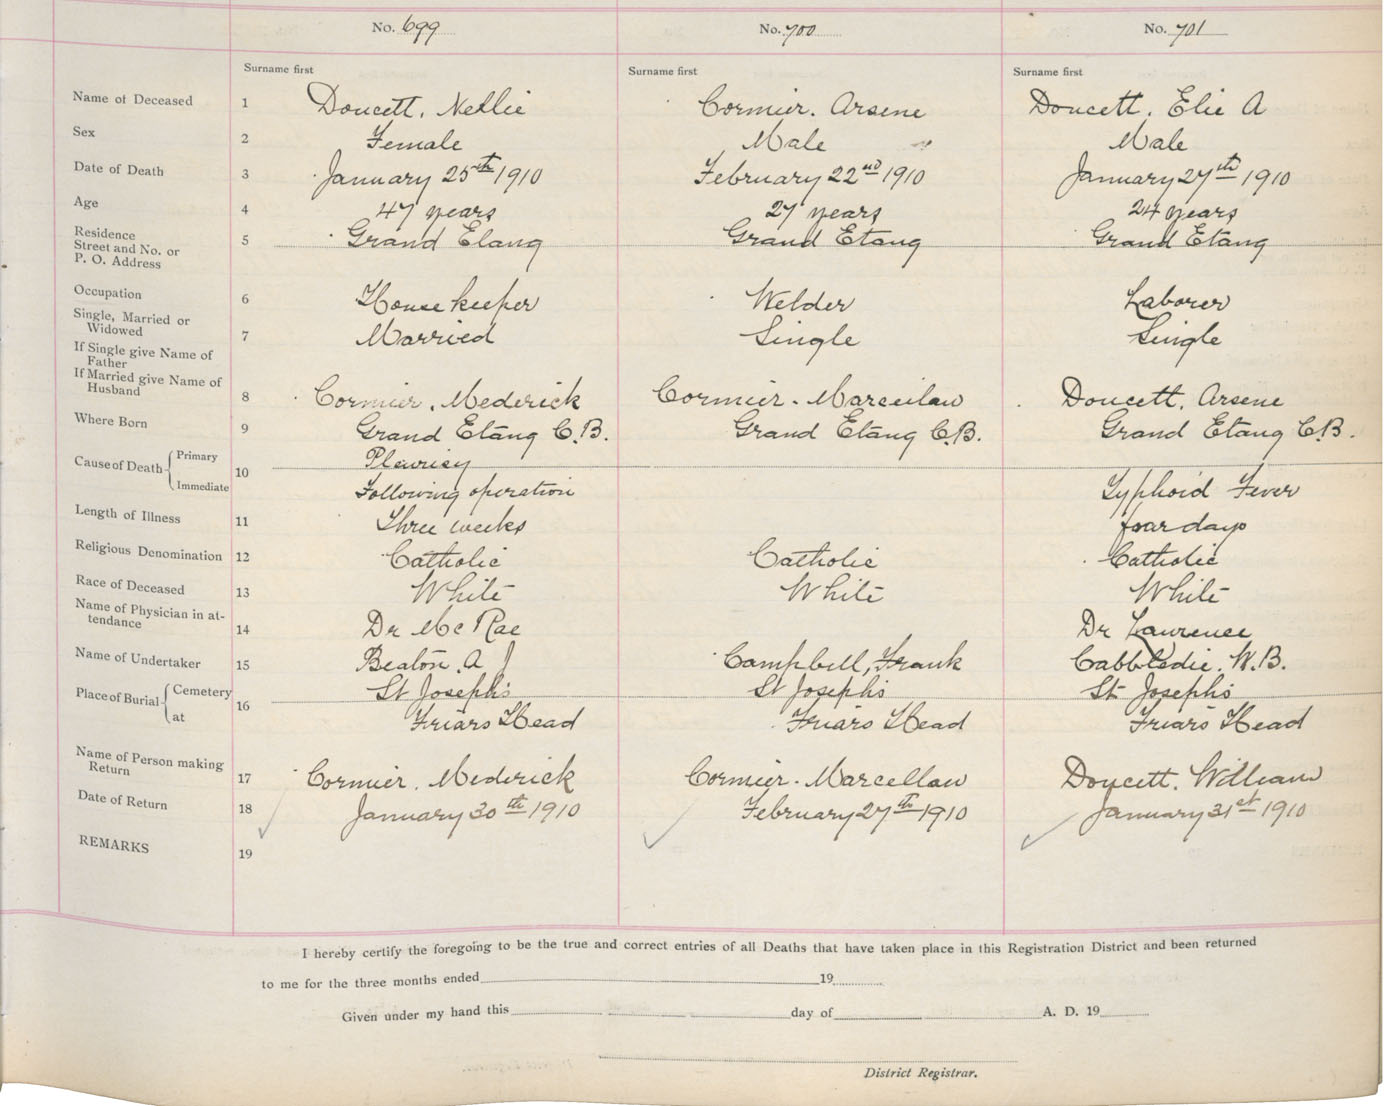 No. 699 No. 700 No. 701
Surname first Surname first Surname first
Name of Deceased 1 Doucett, Nellie Cormier. Arsene Doucett, Elie A
Sex 2 Female Male Male
Date of Death 3 January 25th 1910 February 22nd 1910 January 27th 1910
Age 4 47 years 27 years 24 years
Residence
Street and No. or 5 Grand Etang Grand Etang Grand Etang
P. O. Address
Occupation 6 Housekeeper Welder Laborer
Single, Married or
Widowed 7 Married Single Single
If Single give Name of
Father
If Married give Name of
Husband 8 Cormier, Mederick Cormier. Marceilaw Doucett, Arsene
Where Born 9 Grand Etang C.B. Grand Etang C.B. Grand Etang C.B.
Cause of Death Primary 10 Pleurisy
Immediate Following operation Typhoid Fever
Length of Illness 11 Three weeks four days
Religious Denomination 12 Catholic Catholic Catholic
Race of Deceased 13 White White White
Name of Physician in at-
tendance 14 Dr Mc Rae Dr Lawrence
Name of Undertaker 15 Beaton A J Campbell, Frank Cabbledie. W.B.
Place of Burial Cemetery 16 St Joseph's St Joseph's St Joseph's
at Friars Head Friars Head Friars Head
Name of Person making
Return 17 Cormier, Mederick Cormier. Marcellaw Doucett. William
Date of Return 18 January 30th 1910 February 27th 1910 January 31st 1910
REMARKS 19
I hereby certify the foregoing to be the true and correct entries of all Deaths that have taken place in this Registration District and been returned
to me for the three months ended 19
Given under my hand this day of A. D. 19
District Registrar.